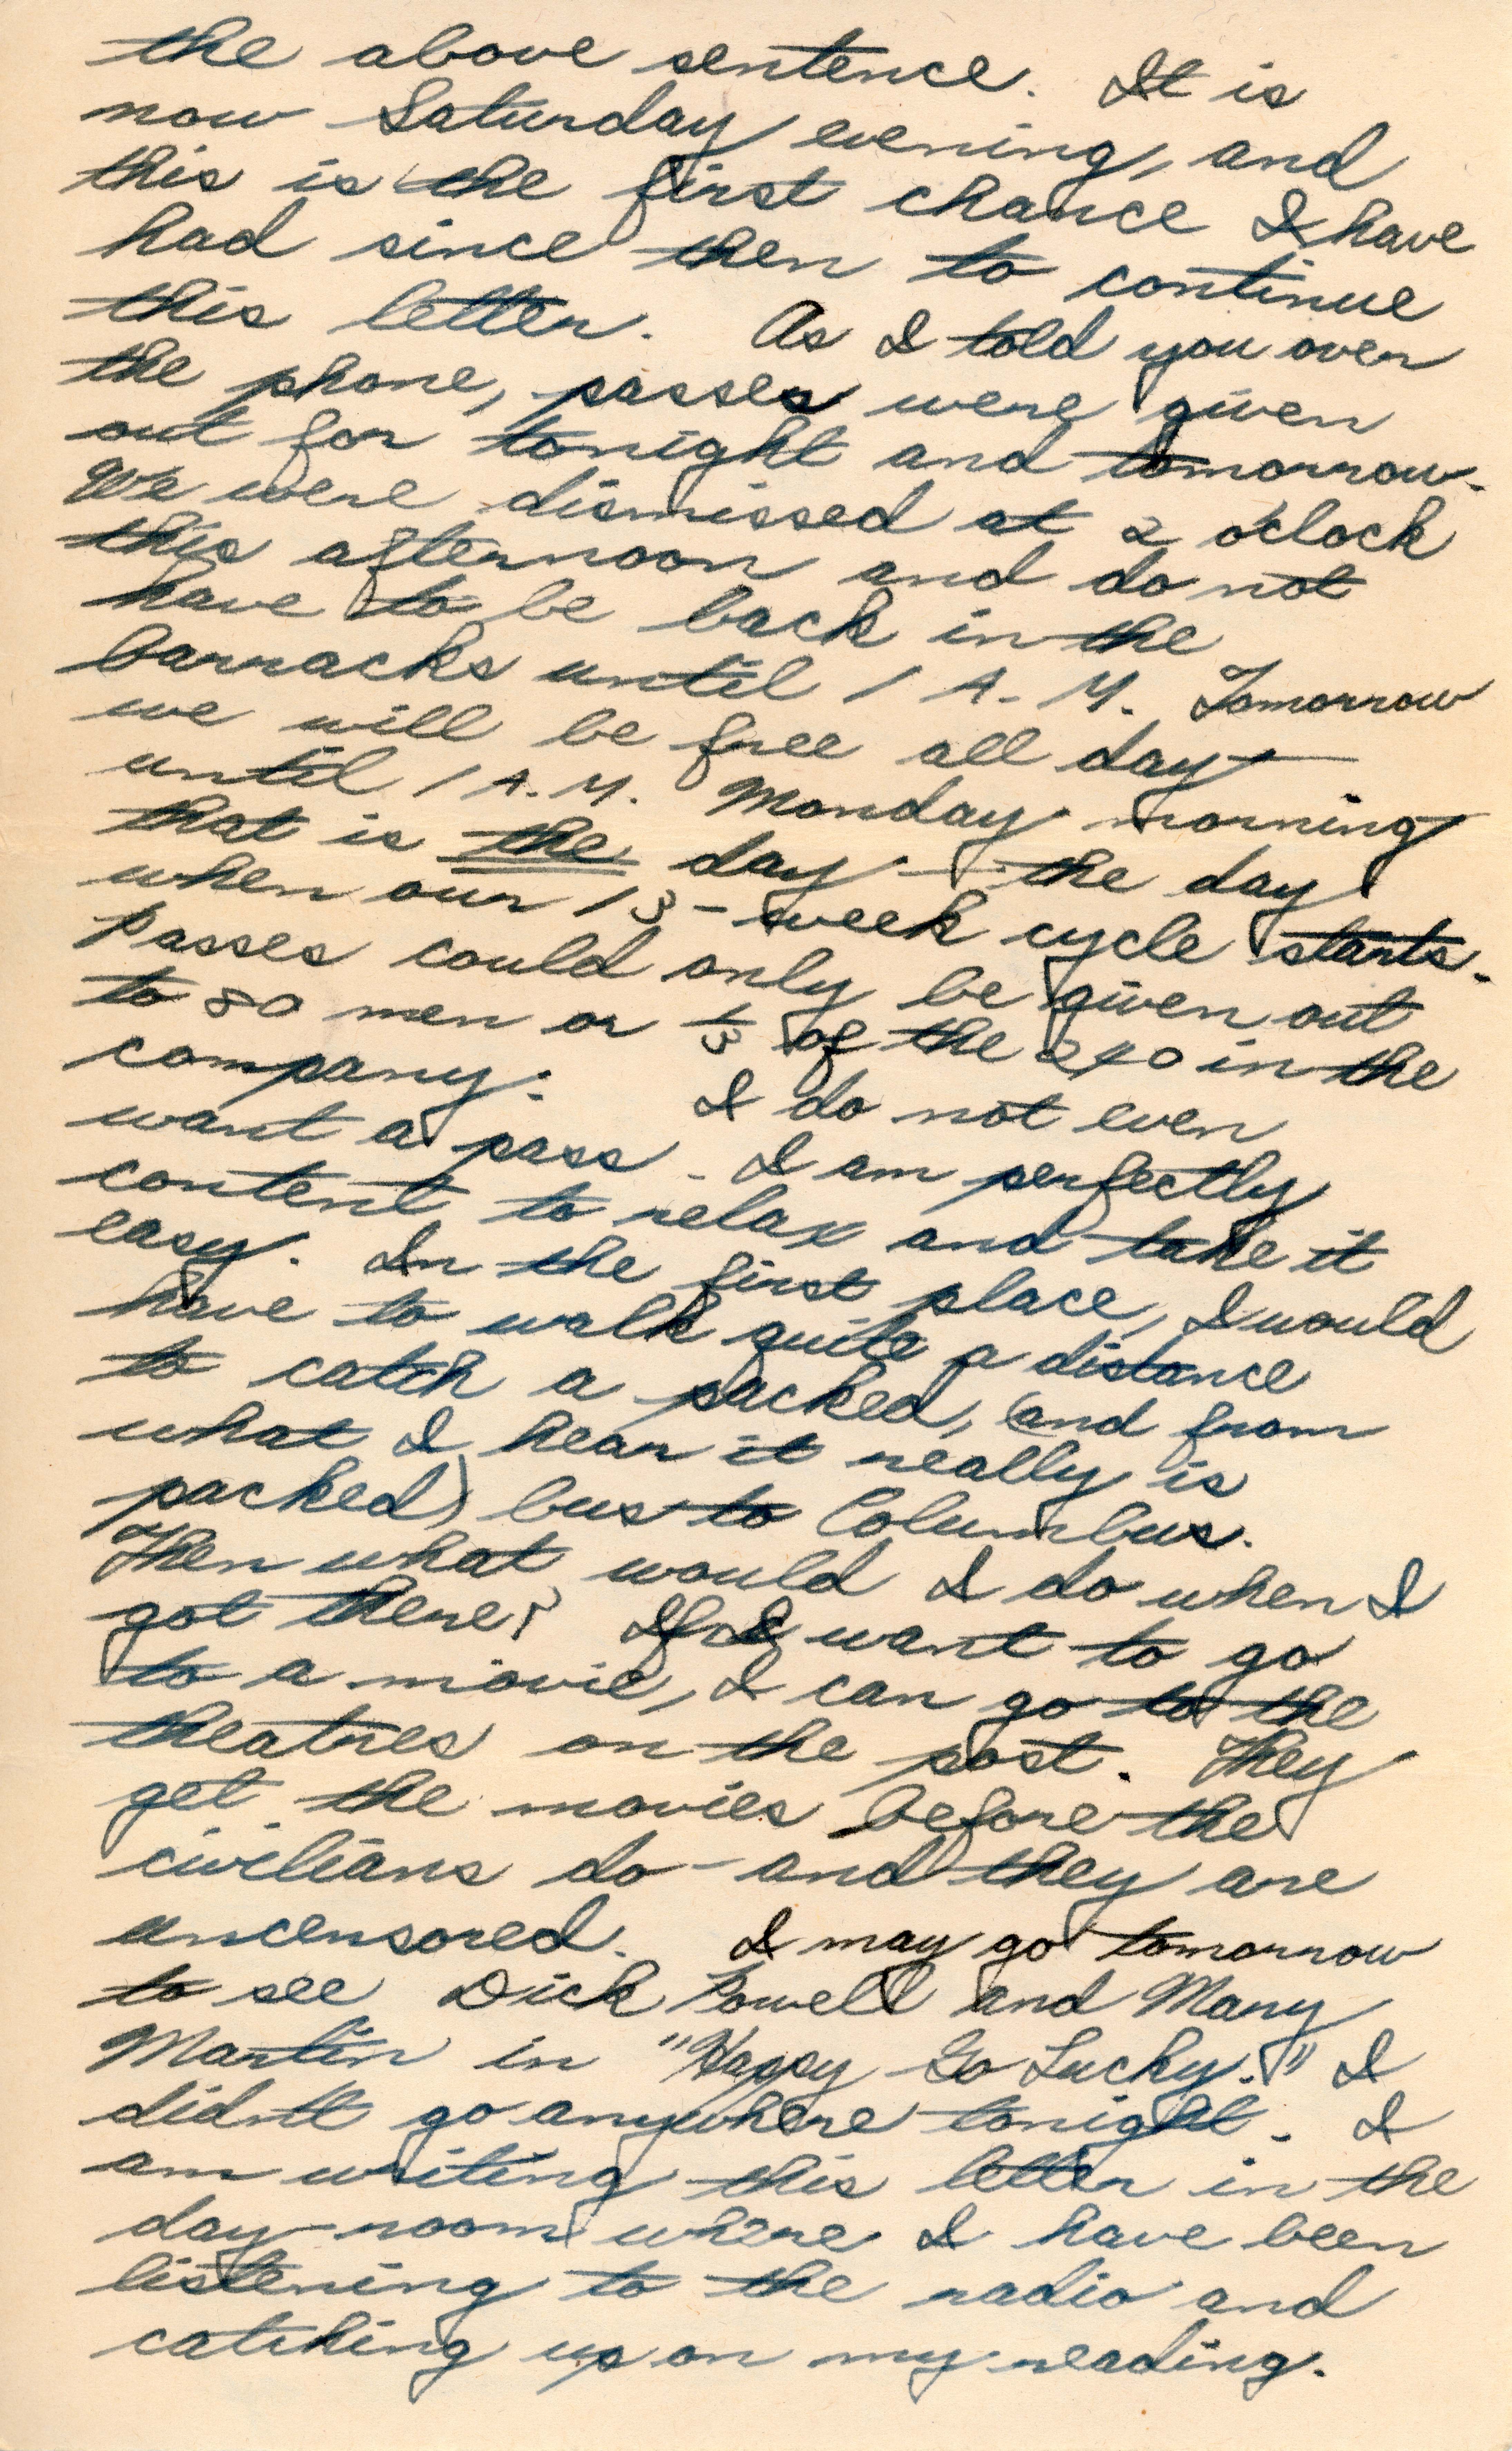 the above sentence. It is
now Saturday evening, and
this is the first chance I have
had since then to continue
this letter. As I told you over
the phone, passes were given
out for tonight and tomorrow.
We were dismissed at 2 o'clock
this afternoon and do not
have to be back in the
barracks until 1 A.M. Tomorrow
we will be free all day —
until 1 A.M. Monday morning
that is the day - the day
when our 13-week cycle starts.
Passes could only be given out
to 80 men or 1/3 of the 240 in the
company. I do not even
want a pass. I am perfectly
content to relax and take it
easy. In the first place, I would
have to walk quite a distance
to catch a packed, (and from
what I hear it really is
packed) bus to Columbus.
Then what would I do when I
got there? If I want to go
to a movie, I can go to the
theatres on the post. They
get the movies before the
civilians do - and they are
uncensored. I may go tomorrow
to see Dick Powell and Mary
Martin in "Happy Go Lucky." I
didn't go anywhere tonight. I
am writing this letter in the
day-room where I have been
listening to the radio and
catching up on my reading.